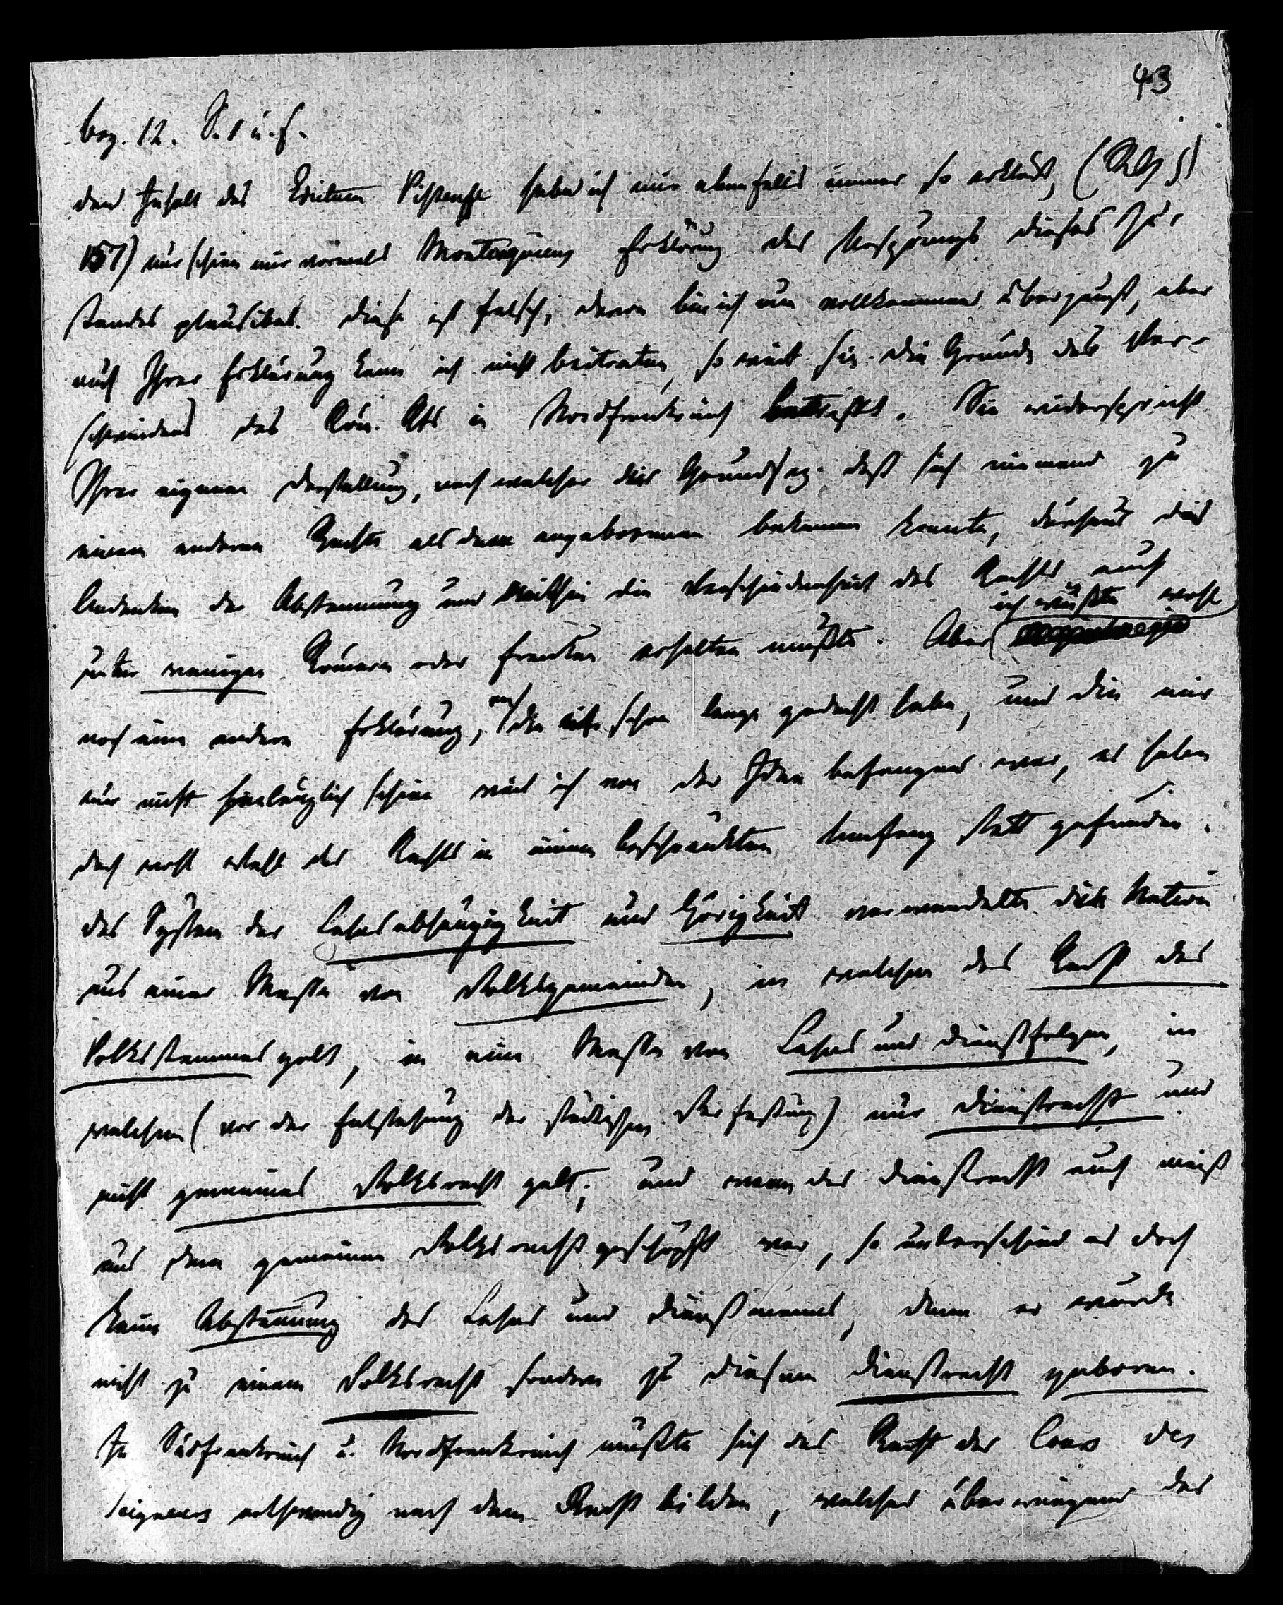 43
bog. 12. S. 1 u. f.
den Inhalt des Edictum Pistense habe ich mir ebenfalls immer so erklärt, (RG I
157) nur schien mir vormals Montesquieus Erklärung des Ursprungs dieses Zu-
standes plausibel. Diese ist falsch, davon bin ich nun vollkommen überzeugt, aber
auch Ihrer Erklärung kann ich nicht beitreten, so weit sie die Gründe des Ver-
schwindens des Röm. Rts in Nordfrankreich betrifft. Sie widerspricht
Ihrer eigenen Darstellung, nach welcher der Grundsatz daß sich niemand zu
einem anderen Rechte als dem angebornen bekennen konnte, durchaus das
Andenken der Abstammung und mithin die Verschiedenheit des Rechts auch
unter wenigen Römern oder Franken erhalten mußte. Aber ich wüßte wohl
noch eine andere Erklärung, an die ich schon lange gedacht habe, und die mir
nur nicht hinlänglich schien weil ich von der Idee befangen war, es habe
doch wohl Wahl des Rechts in einem beschränkten Umfang statt gefunden.
das System der Lehnsabhängigkeit und Hörigkeit verwandelte die Nation
aus einer Masse von Volksgemeinden, in welchen das Recht des
Volksstammes galt, in eine Masse von Lehns und Dienstfolgen, in
welchen (vor der Entstehung der städtischen Verfassung) nur Dienstrecht und
nicht gemeines Volksrecht galt; und wenn das Dienstrecht auch meist
aus dem gemeinen Volksrecht geschöpft war, so unterschied es doch
keine Abstammung des Lehns und Dienstmannes, denn er wurde
nicht zu einem Volksrecht sondern zu diesem Dienstrecht geboren.
In Südfrankreich u. Nordfrankreich mußte sich das Recht der Cours des
seigneurs nothwendig nach dem Recht bilden, welches überwiegend das